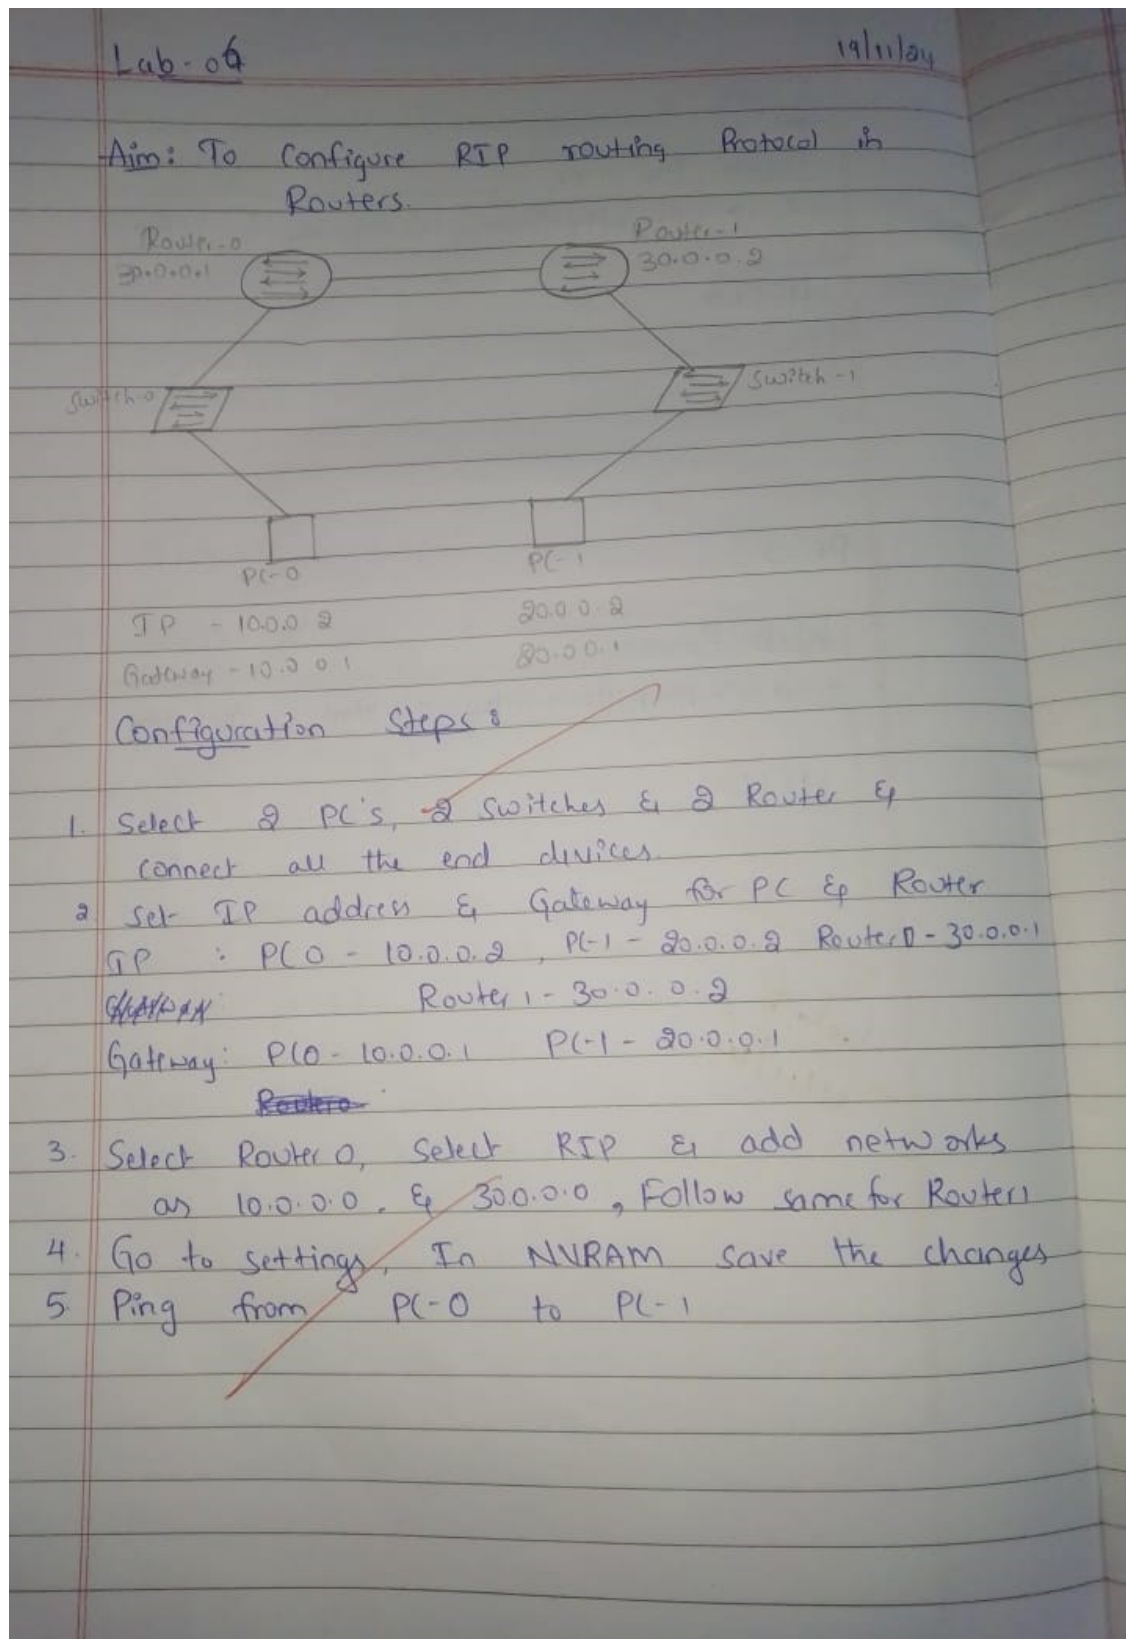 Lab-06
19/11/24
Aim: To Configure RIP routing Protocol in
Routers.
Router-0
Router-1
30.0.0.1
30.0.0.2
Switch-0
Switch-1
PC-0
PC-1
IP - 10.0.0 2
20.0 0.2
Gateway - 10.0 0 1
20.0 0.1
Configuration Steps:
1. Select 2 PC's, 2 switches & 2 Router &
connect all the end devices.
2 Set IP address & Gateway for PC & Router
IP : PC0 - 10.0.0.2, PC-1 - 20.0.0.2 Router0 - 30.0.0.1
Router 1 - 30.0.0.2
Gateway: PC0 - 10.0.0.1 PC-1 - 20.0.0.1
Router0
3. Select Router 0, Select RIP & add networks
as 10.0.0.0. & 30.0.0.0, Follow same for Router1
4. Go to settings, In NVRAM save the changes
5. Ping from PC-0 to PC-1